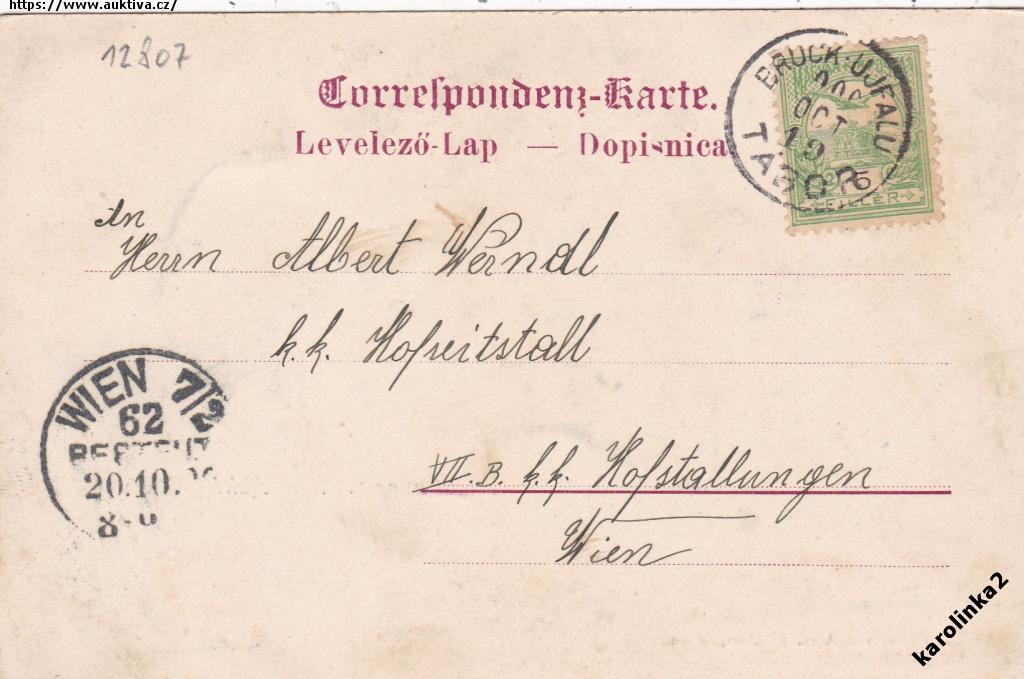 https://www.auktiva.cz/
12807
Correspondenz-Karte.
Levelező-Lap — Dopisnica
BRUCK-UJFALU
900
OCT
19
TABOR
5
FILLÉR
An
Herrn Albert Werndl
k. k. Hofreitstall
WIEN 7/2
62
BESTELLT
20.10.
VII. B. k. k. Hofstallungen
Wien
karolinka2